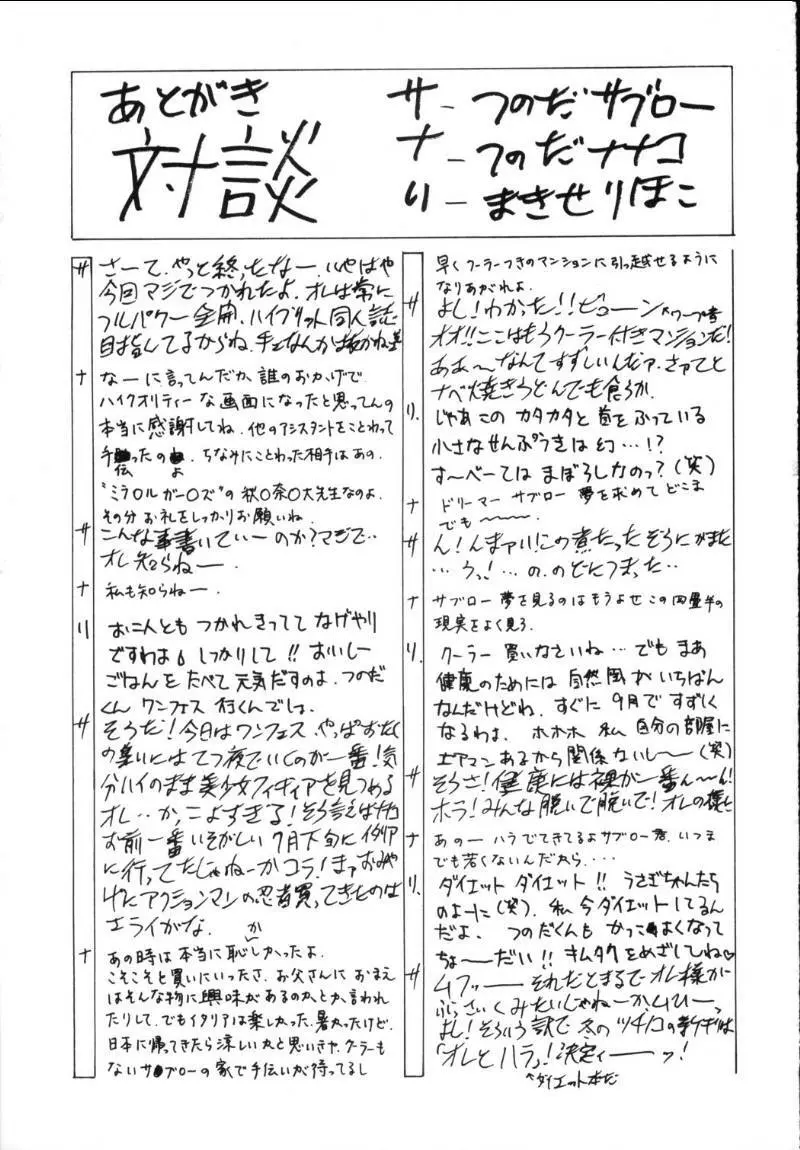 あとがき
対談
サ－つのだサブロー
ナ－つのだナナコ
り－まきせりほこ
サ さーて、やっと終ったなー、いやはや
今回マジでつかれたよ。オレは常に
フルパワー全開、ハイブリット同人誌
目指してるからね。手なんかは抜かねぇ
ナ なーに言ってんだか、誰のおかげで
ハイクオリティーな画面になったと思ってんの
本当に感謝してね。他のアシスタントをことわって
手伝ったのよ。ちなみにことわった相手はあの、
"ミラ○ル ガー○ズ"の秋○奈○大先生なのよ。
その分お礼をしっかりお願いね。
サ こんな事書いてい－のか?マジで‥
オレ知らねー。
ナ 私も知らねー。
リ お二人とも つかれきってて なげやり
ですわよ。しっかりして!!おいしー
ごはんを たべて 元気だすのよ。つのだ
くん ワンフェス 行くんでしょ。
サ そうだ!今日はワンフェス、やっぱおたく
の集いには てつ夜でいくのが一番!気
分ハイのまま美少女フィギュアを見つめる
オレ‥かっこよすぎる!そう言えばナナコ
お前一番いそがしい7月下旬にイタリア
に行ってたじゃねーかコラ!まァおみや
げにアクションマンの忍者買ってきたのは
エライがな。
ナ あの時は本当に恥かしかったよ。
こそこそと買いにいったさ、お父さんに おまえ
はそんな物に興味があるのかとか言われ
たりして、でもイタリアは楽しかった、暑かったけど、
日本に帰ってきたら涼しいかと思いきや、クーラーも
ないサブローの家で手伝いが待ってるし
早くクーラーつきのマンションに引っ越せるように
なりあがれよ。
サ よし!わかった!!ビューン←ワープ音
オオ!!ここはもうクーラー付きマンションだ!
ああ〜なんてすずしいんだァ、さァてと
ナベ焼きうどんでも食うか。
り. じゃあこの カタカタと首をふっている
小さなせんぷうきは幻…!?
す〜べ〜ては まぼろしなのっ?(笑)
ナ ドリーマー サブロー 夢を求めて どこま
でも〜〜〜。
サ ん!んまァい!この煮たったぞうにがまた
…うっ!…の、のどにつまった‥
ナ サブロー 夢を見るのはもうよせ この四畳半の
現実をよく見ろ。
リ. クーラー 買いなさいね…でも まあ
健康のためには 自然風が いちばん
なんだけどね。すぐに 9月で すずしく
なるわよ。ホホホ 私 自分の部屋に
エアマンあるから関係ないし〜(笑)
サ そうさ!健康には裸が一番ん〜ん!
ホラ!みんな脱いで脱いで!オレの様に
ナ あのー ハラでてきてるよサブロー君、いつま
でも若くないんだから‥‥
り. ダイエット ダイエット!! うさぎちゃんたち
のよーに(笑)。私 今ダイエットしてるん
だよ。つのだくんも かっこよくなって
ちょ〜だい!! キムタクをめざしてね♡
サ ムフッーー それだとまるでオレ様が
ぶさいくみたいじゃねーか、ムひーっ
よし!そういう訳で 冬の ツチノコの新刊は
「オレとハラ」!決定ィーーッ!
^ダイエット本だ